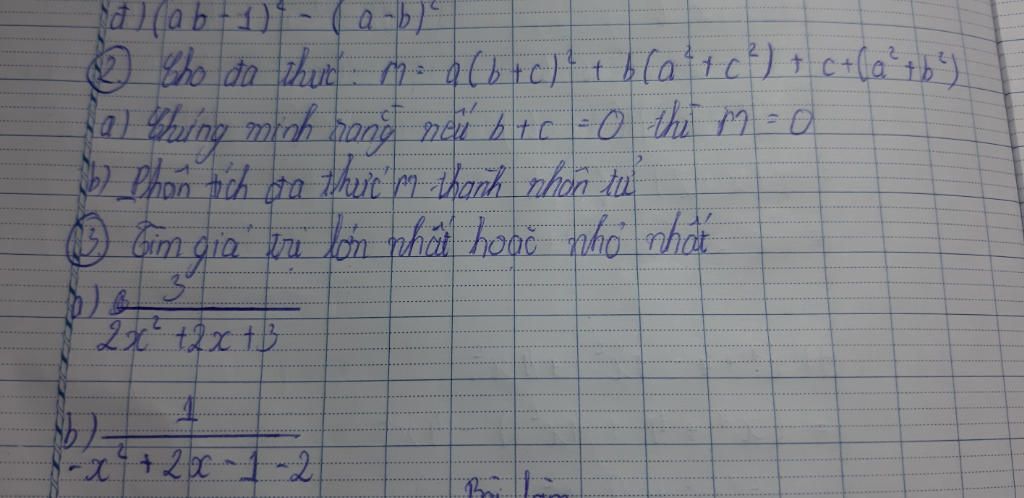 d) (ab + 1)² - (a - b)²
② Cho đa thức: m = a(b+c)² + b(a² + c²) + c+(a² + b²)
a) Chứng minh rằng nếu b + c = 0 thì m = 0
b) Phân tích đa thức m thành nhân tử
③ Tìm giá trị lớn nhất hoặc nhỏ nhất
a) 3
2x² + 2x + 3
b) 1
-x² + 2x - 1 - 2
Bài làm